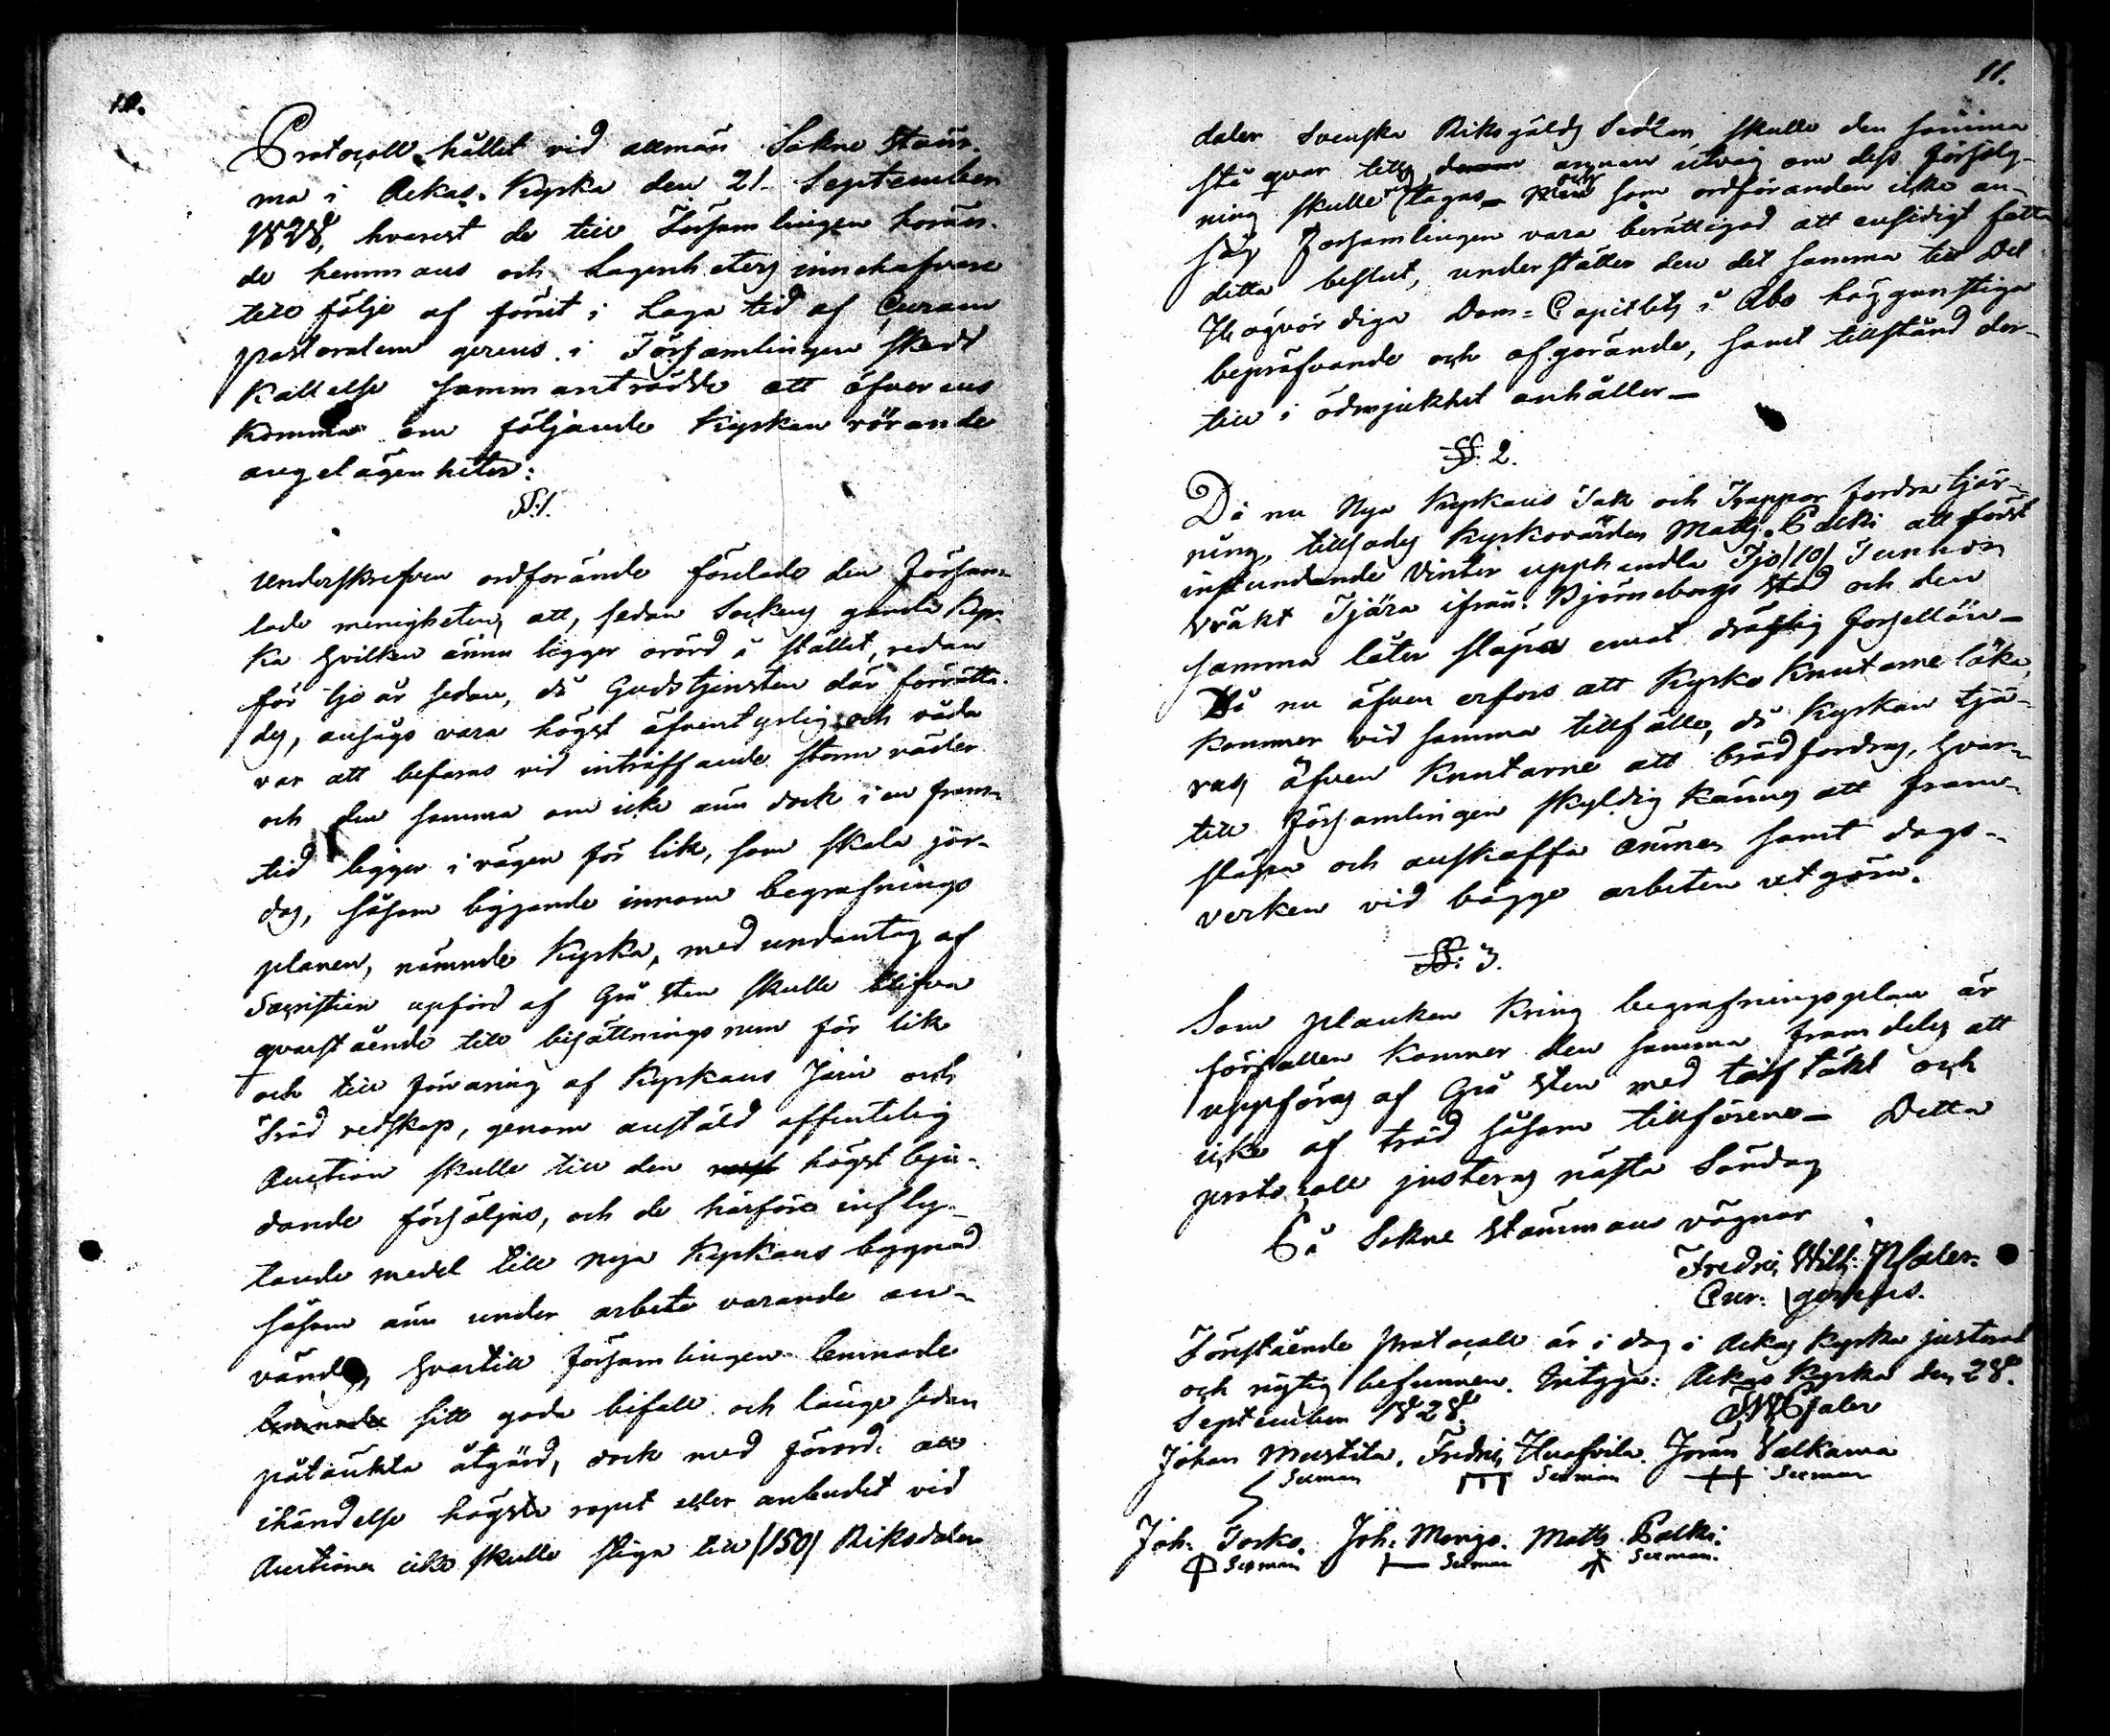 10.
Protocoll hållet vid allmän Sokne Stäm-
ma i Ackas Kyrka den 21 September
1828, hvarest de till Församlingen höran-
de hemmans och Lägenheters innehafvare
till följe af förut i Laga tid af Curam
pastoralem gerens i Församlingen skedd
Kallelse sammanträdde att öfverens
komma om följande Kyrkan rörande
angelägenheter:
§.1.
Underskrefven ordförande förelade den Försam-
lade menigheten, att, sedan Sockens gamla Kyr-
ka hvilken ännu ligger orörd å stället, redan
för tjo år sedan, då Gudstjensten där förrätta-
des, ansågs vara högst äfventyrlig och våda
var att befaras vid inträffande storm väder
och den samma om icke ännu dock i en fram-
tid ligger i vägen för lik, som skola jor-
das, såsom liggande innom begrafnings
planen, nämnde Kyrka, med undantag af
Sacristian upförd af Grå sten skulle blifva
qvarstående till bisättningsrum för lik
och till förvaring af Kyrkans Järn och
Träd redskap, genom anstäld offentelig
Auction skulle till den högst bju-
dande försäljas, och de härföre infly-
tande medel till nya Kyrkans byggnad
såsom ännu under arbete varande an-
vändas, hvartill Församlingen lemnade
lemnade sitt goda bifall och länge sedan
påtänkta åtgärd, dock med förord, att
ihändelse högsta ropet eller anbudet vid
Auctionen icke skulle stiga till (150) Riksdaler
11.
daler Svenska Riksgälds Sedlar skulle den samma
stå qvar tills annan utväg om dess försälj-
ning skulle tagas – och som ordföranden icke an-
såg Församlingen vara berättigad att ensidigt fatta
detta beslut, underställes den det samma till Det
Högvördiga Dom-Capitlets i Åbo höggunstiga
bepröfvande och afgörande, samt tillstånd der-
till i ödmjukhet anhåller –
§. 2.
Då nu Nya Kyrkans Tak och Trappor fordra tjär-
ning, tillsades Kyrkovärden Matts Palki att först
instundande Vinter upphandla Tjo (10) Tunnor
vräkt Tjära ifrån Björneborgs Stad och den
samma låter släpa emot dräglig Forsellön –
Då nu äfven erfors att Kyrko Knutarne läka,
kommer vid samma tillfälle, då Kyrkan tjä-
ras äfven Knutarne att brädfordras, hvar-
till Församlingen skyldig kännes att fram-
släpa och anskaffa ämnen samt dags-
verken vid bägge arbeten utgöra.
§. 3.
Som planken kring begrafningsplan är
förfallen kommer den samma framdeles att
uppföras af Grå sten med torf täkt och
icke af träd såsom tillförene – Detta
protocoll justeras nästa Söndag
På Sokne stämmans vägnar
Fredric Wilh: Psaler.
Cur: gerens.
Förestående protocoll är i dag i Ackas Kyrka justerad
och rigtig befunnen. Intyga: Ackas Kyrka den 28.
September 1828.
FWPsaler
Johan Mustila. Fredric Huafvila. Jöran Valkama
Sexman Sexman Sexman
Joh. Torko. Joh: Monjo. Matts Palki.
Sexman Sexman Sexman.